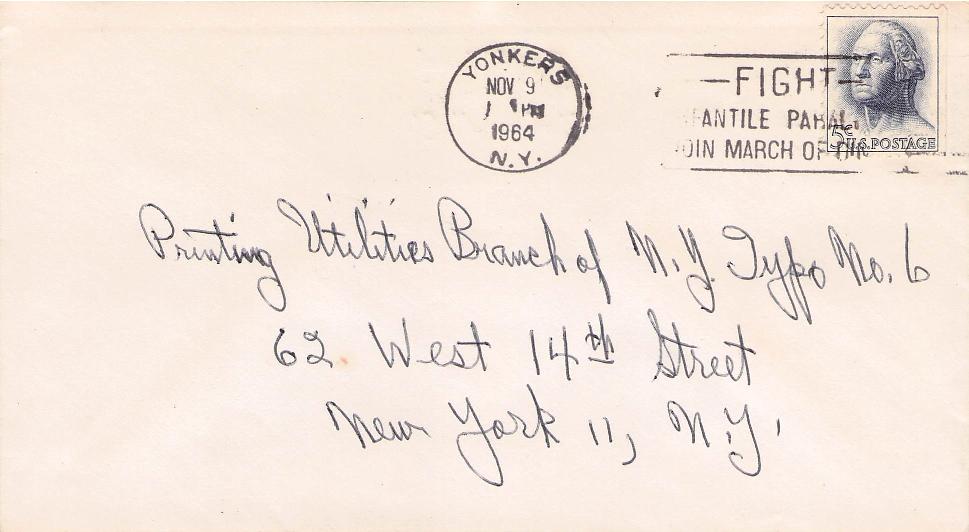 YONKERS
NOV 9
PM
1964
N.Y.
—FIGHT—
FANTILE PARAL
OIN MARCH OF DIM
5¢
U.S. POSTAGE
Printing Utilities Branch of N.Y. Typo No. 6
62 West 14th Street
New York 11, N.Y.